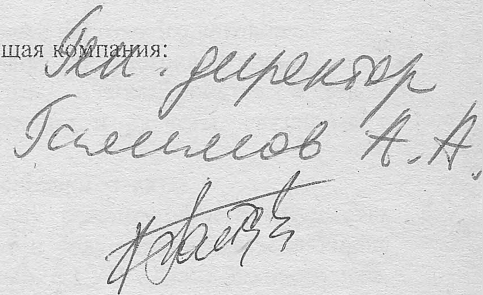 щая компания:
Ген. директор
Галимов А.А.